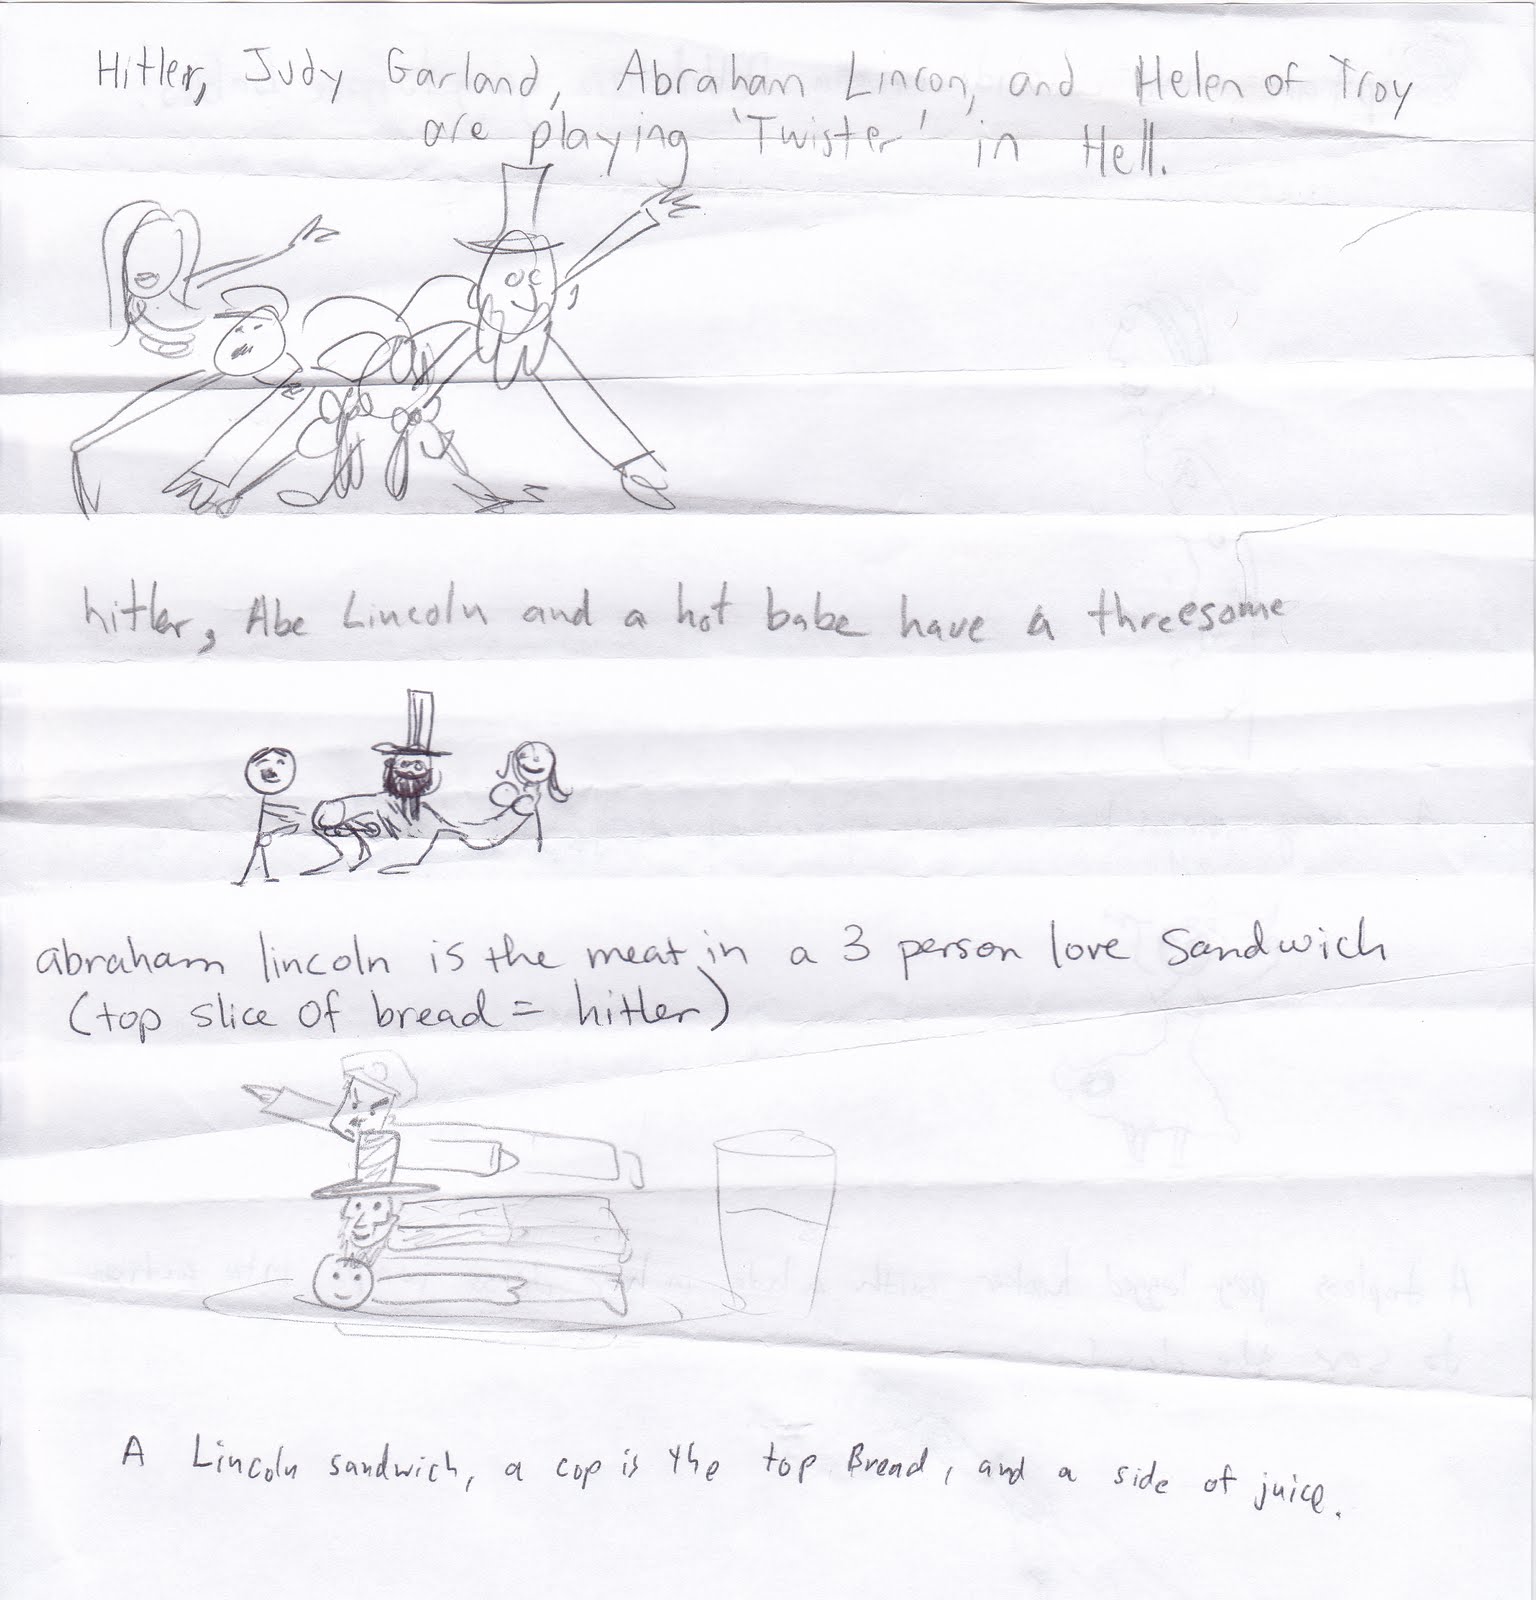 Hitler, Judy Garland, Abraham Lincon, and Helen of Troy
are playing 'Twister' in Hell.
hitler, Abe Lincoln and a hot babe have a threesome
abraham lincoln is the meat in a 3 person love sandwich
(top slice of bread = hitler)
A Lincoln sandwich, a cop is the top Bread, and a side of juice.